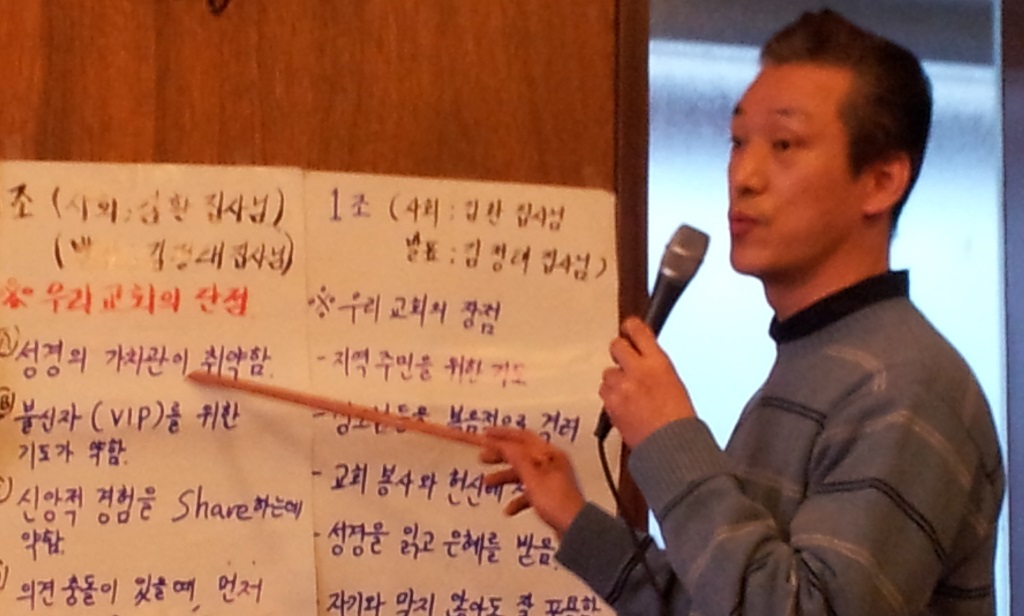 조 (사회: 김환 집사님)
김정태 집사님)
※ 우리교회의 단점
성경의 가치관이 취약함.
불신자 (VIP)를 위한
기도가 약함.
신앙적 경험을 Share하는데
약함.
의견 충돌이 있을때, 먼저
1조 (사회 : 김환 집사님
발표 : 김정태 집사님)
※ 우리 교회의 장점
- 지역 주민을 위한 기도
복음적으로 격려
- 교회 봉사와
- 성경을 읽고 은혜를 받음.
자기와 맞지 않아도 잘